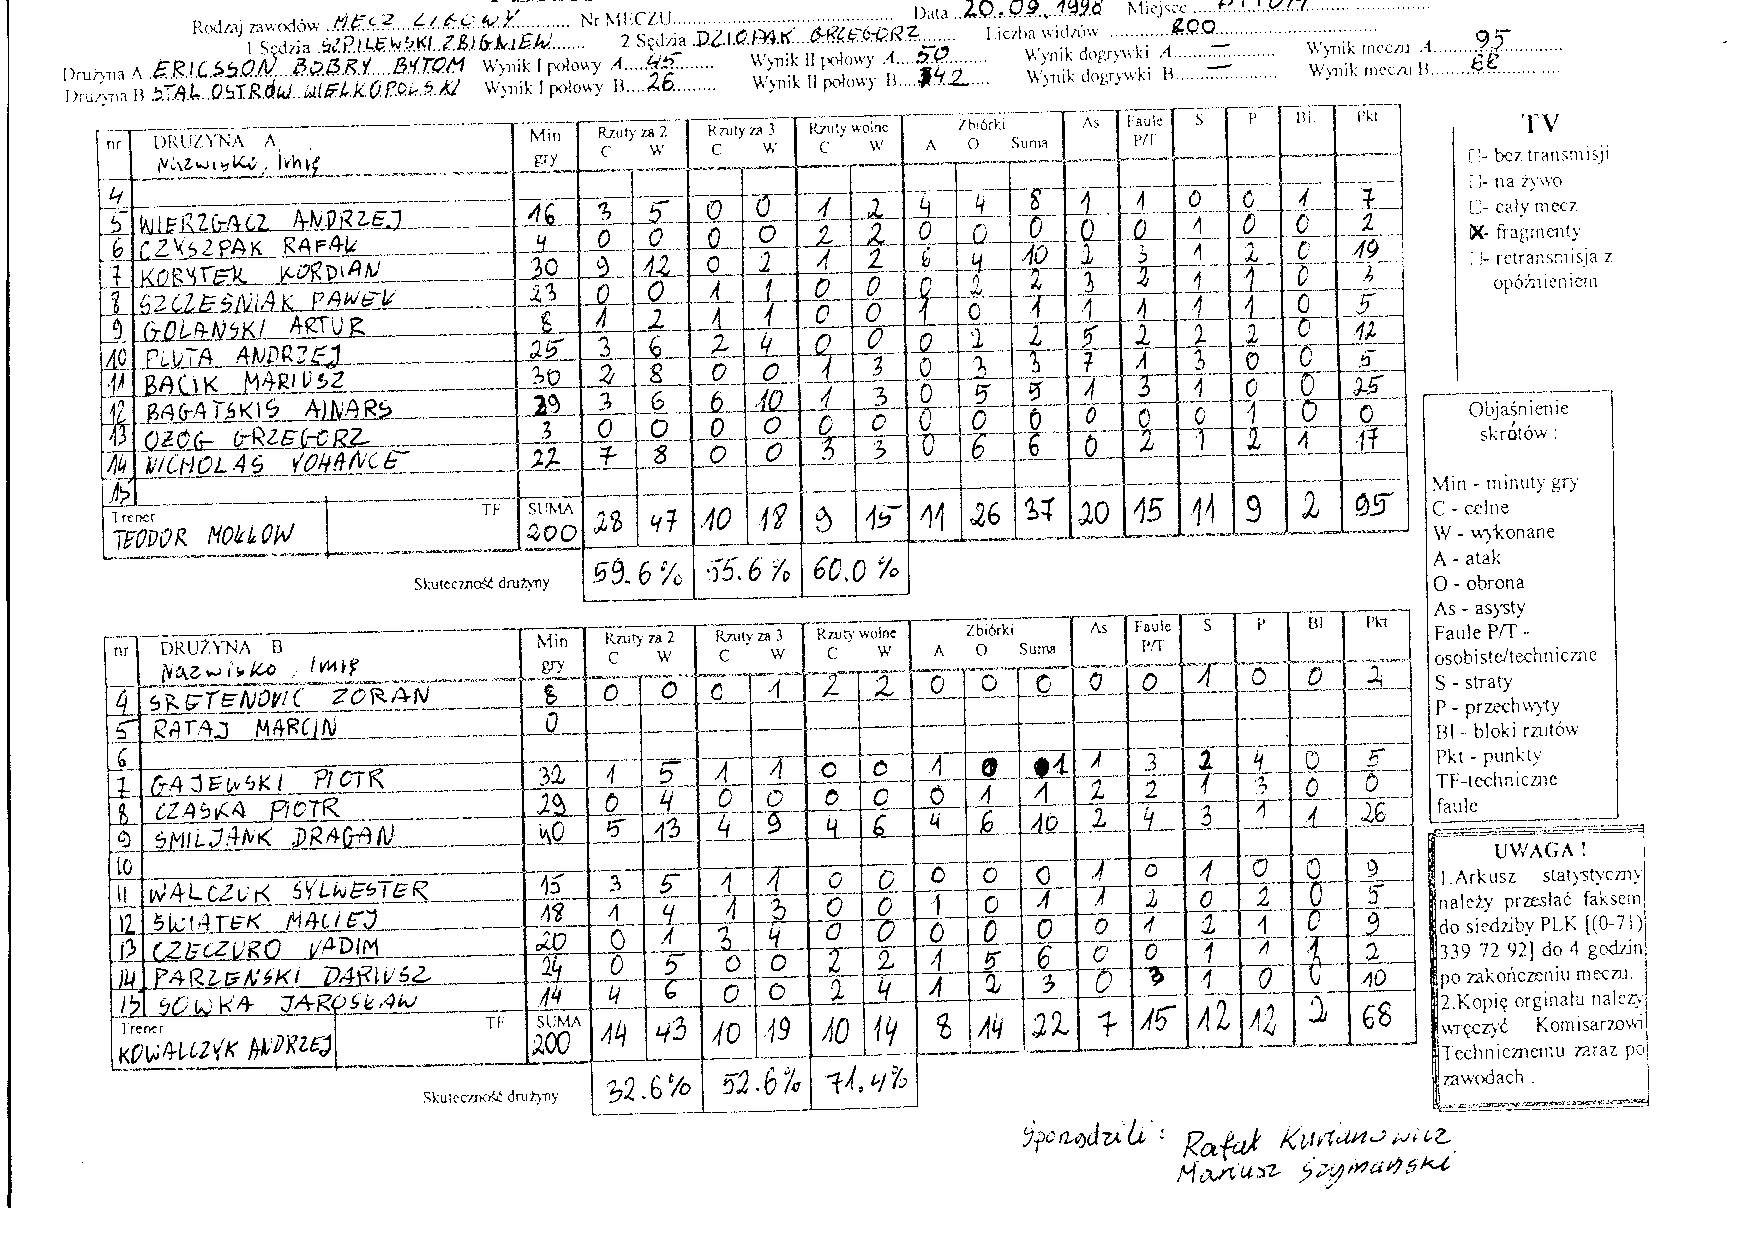 Rodzaj zawodów MECZ LIGOWY Nr MECZU Data 20.09.1998 Miejsce
1 Sędzia SZPILEWSKI ZBIGNIEW 2 Sędzia DZIOPAK GRZEGORZ Liczba widzów 200
Drużyna A ERICSSON BOBRY BYTOM Wynik I połowy A 45 Wynik II połowy A 50 Wynik dogrywki A — Wynik meczu A 95
Drużyna B STAL OSTRÓW WIELKOPOLSKI Wynik I połowy B 26 Wynik II połowy B 42 Wynik dogrywki B — Wynik meczu B 68
nr DRUŻYNA A Min Rzuty za 2 Rzuty za 3 Rzuty wolne Zbiórki As Faule S P Bl. Pkt
Nazwisko, Imię gry C W C W C W A O Suma P/T
4
5 WIERZGACZ ANDRZEJ 16 3 5 0 0 1 2 4 4 8 1 1 0 0 1 7
6 CZYSZPAK RAFAŁ 4 0 0 0 0 2 2 0 0 0 0 0 1 0 0 2
7 KORYTEK KORDIAN 30 9 12 0 2 1 2 6 4 10 2 3 1 2 0 19
8 SZCZEŚNIAK PAWEŁ 23 0 0 1 1 0 0 0 2 2 3 2 1 1 0 3
9 GOLAŃSKI ARTUR 8 1 2 1 1 0 0 1 0 1 1 1 1 1 0 5
10 PLUTA ANDRZEJ 25 3 6 2 4 0 0 0 2 2 5 2 2 2 0 12
11 BACIK MARIUSZ 30 2 8 0 0 1 3 0 3 3 7 1 3 0 0 5
12 BAGATSKIS AINARS 39 3 6 6 10 1 3 0 5 5 1 3 1 0 0 25
13 OŻÓG GRZEGORZ 3 0 0 0 0 0 0 0 0 0 0 0 0 1 0 0
14 NICHOLAS YOHANCE 22 7 8 0 0 3 3 0 6 6 0 2 1 2 1 17
15
Trener TF SUMA
TEODOR MOŁŁOW 200 28 47 10 18 9 15 11 26 37 20 15 11 9 2 95
Skuteczność drużyny 59.6% 55.6% 60.0%
nr DRUŻYNA B Min Rzuty za 2 Rzuty za 3 Rzuty wolne Zbiórki As Faule S P Bl Pkt
Nazwisko, Imię gry C W C W C W A O Suma P/T
4 SRETENOVIC ZORAN 8 0 0 0 1 2 2 0 0 0 0 0 1 0 0 2
5 RATAJ MARCIN 0
6
7 GAJEWSKI PIOTR 32 1 5 1 1 0 0 1 0 1 1 3 2 4 0 5
8 CZASKA PIOTR 29 0 4 0 0 0 0 0 1 1 2 2 1 3 0 0
9 SMILJANK DRAGAN 40 5 13 4 9 4 6 4 6 10 2 4 3 1 1 26
10
11 WALCZUK SYLWESTER 15 3 5 1 1 0 0 0 0 0 1 0 1 0 0 9
12 ŚWIATEK MACIEJ 18 1 4 1 3 0 0 1 0 1 1 2 0 2 0 5
13 CZECZURO VADIM 20 0 1 3 4 0 0 0 0 0 0 1 2 1 0 9
14 PARZEŃSKI DARIUSZ 24 0 5 0 0 2 2 1 5 6 0 0 1 1 1 2
15 SÓWKA JAROSŁAW 14 4 6 0 0 2 4 1 2 3 0 3 1 0 0 10
Trener TF SUMA
KOWALCZYK ANDRZEJ 200 14 43 10 19 10 14 8 14 22 7 15 12 12 2 68
Skuteczność drużyny 32.6% 52.6% 71.4%
Sporządzili: Rafał Kurianowicz
Mariusz Szymański
TV
- bez transmisji
- na żywo
- cały mecz
X- fragmenty
- retransmisja z
opóźnieniem
Objaśnienie
skrótów :
Min - minuty gry
C - celne
W - wykonane
A - atak
O - obrona
As - asysty
Faule P/T -
osobiste/techniczne
S - straty
P - przechwyty
Bl - bloki rzutów
Pkt - punkty
TF-techniczne
faule
UWAGA !
1.Arkusz statystyczny
należy przesłać faksem
do siedziby PLK [(0-71)
339 72 92] do 4 godzin
po zakończeniu meczu.
2.Kopię orginału należy
wręczyć Komisarzowi
Technicznemu zaraz po
zawodach .